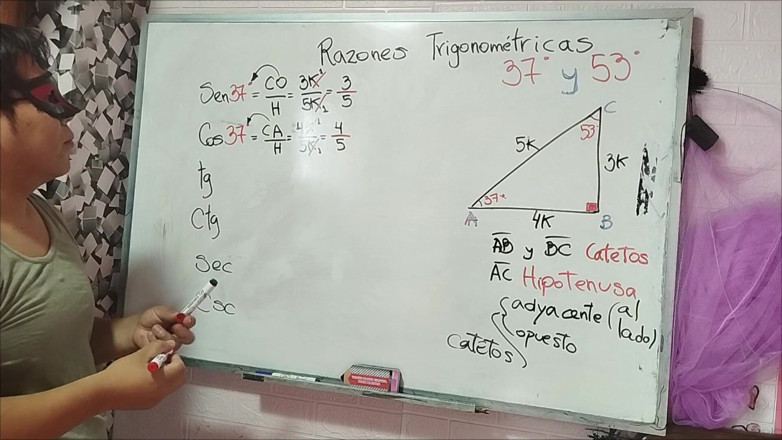 Razones Trigonométricas
37° y 53°
Sen37° = CO/H = 3K/5K = 3/5
Cos37° = CA/H = 4K/5K = 4/5
tg
Ctg
Sec
Csc
C
53°
5K
3K
37°
A
4K
B
AB y BC Catetos
AC Hipotenusa
Catetos { adyacente (al lado)
opuesto